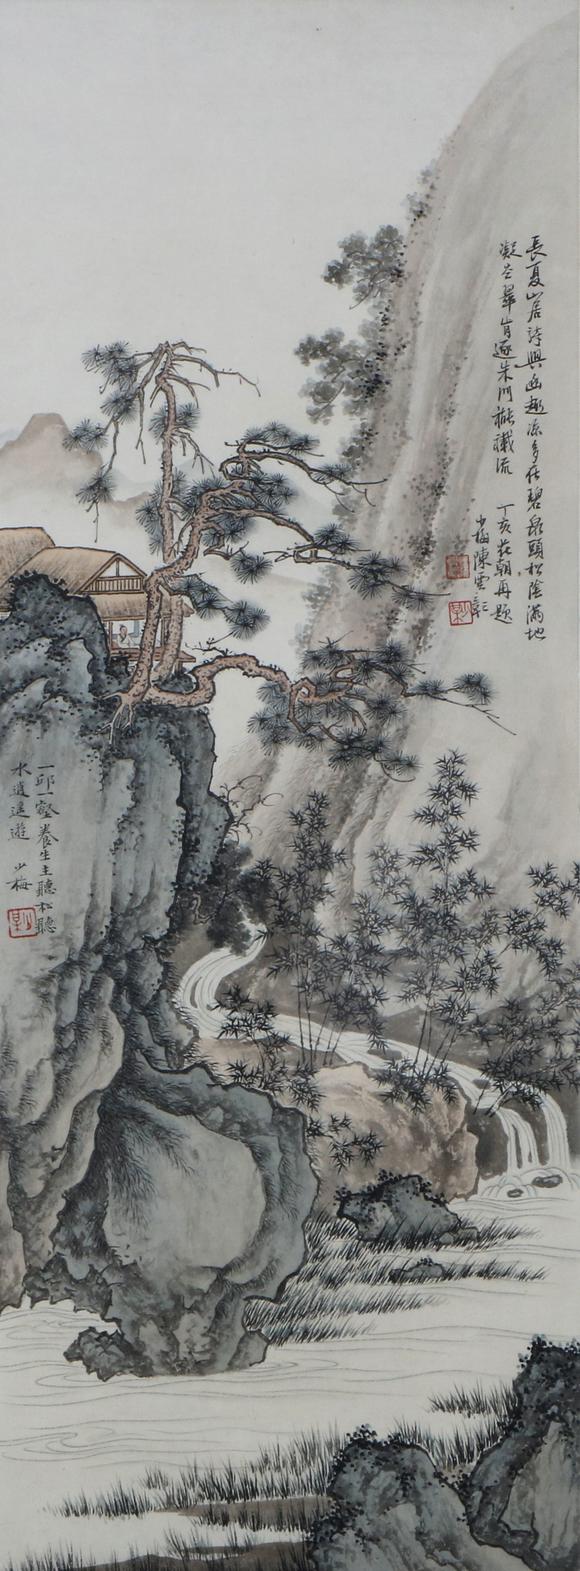 長夏山居詩興幽趣添多在碧泉頭松陰滿地
凝空翠肯逐朱門
流
丁亥花朝再題
少梅陳雲彰
一邱一壑養生主聽松聽
水逍遥遊 少梅